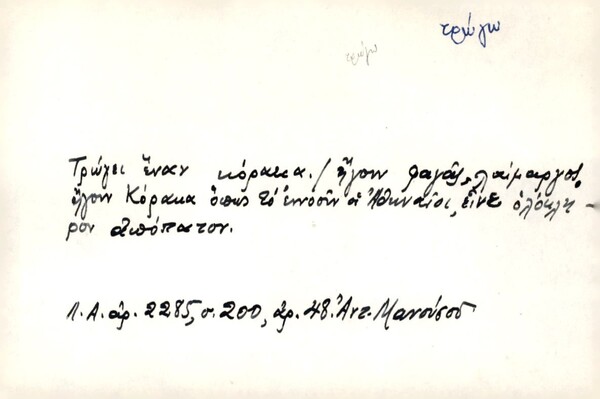 τρώγω
τρώγω
Τρώγει ἕναν κόρακα./ ἤγουν φαγᾶς, λαίμαργος,
ἤγουν Κόρακα ὅπως τό ἐννοοῦν οἱ Ἀθηναῖοι, εἶνε ὁλόκλη-
ρον ἀπόπατον.
Λ.Α. ἀρ. 2285, σ. 200, ἀρ. 48. Ἀντ. Μανούσου